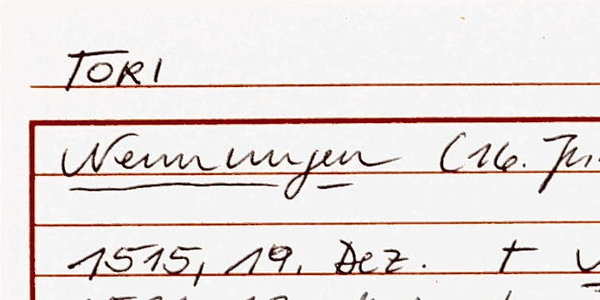 TORI
Nennungen (16. Jh.
1515, 19. Dez. †